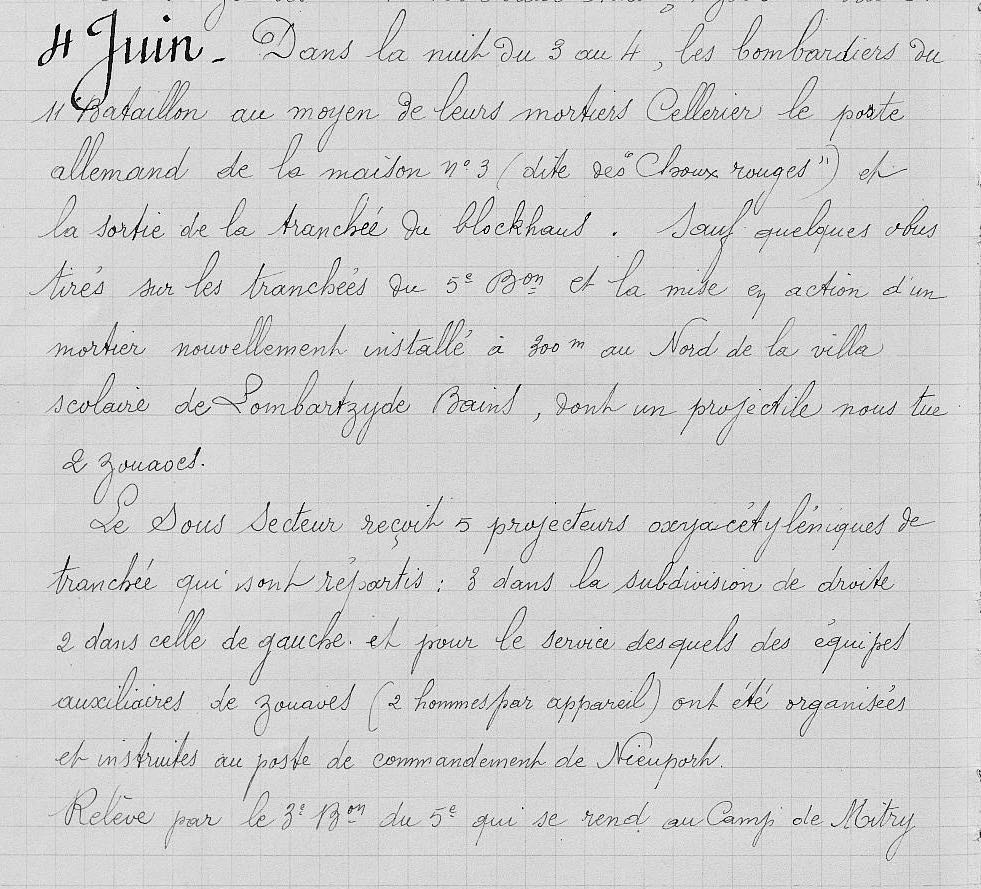 4 Juin - Dans la nuit du 3 au 4, les bombardiers du
11e Bataillon au moyen de leurs mortiers Cellerier le poste
allemand de la maison n° 3 (dite des "Choux rouges") et
la sortie de la tranchée du blockhaus. Sauf quelques obus
tirés sur les tranchées du 5e Bon et la mise en action d'un
mortier nouvellement installé à 300m au Nord de la villa
scolaire de Lombartzyde Bains, dont un projectile nous tue
2 zouaves.
Le Sous Secteur reçoit 5 projecteurs oxyacétyléniques de
tranchée qui sont répartis : 3 dans la subdivision de droite
2 dans celle de gauche. et pour le service desquels des équipes
auxiliaires de zouaves (2 hommes par appareil) ont été organisées
et instruites au poste de commandement de Nieuport.
Relève par le 3e Bon du 5e qui se rend au Camp de Mitry